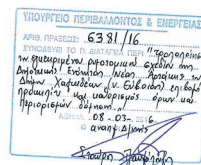 ΥΠΟΥΡΓΕΙΟ ΠΕΡΙΒΑΛΛΟΝΤΟΣ & ΕΝΕΡΓΕΙΑΣ
ΑΡΙΘ. ΠΡΑΞΕΩΣ: 6381/16
ΣΥΝΟΔΕΥΕΙ ΤΟ Π. ΔΙΑΤΑΓΜΑ ΠΕΡΙ "Τροποποίηση
του εγκεκριμένου ρυμοτομικού σχεδίου της
Δημοτικής Ενότητας Νέας Αρτάκης του
Δήμου Χαλκιδέων (ν. Ευβοίας) επιβολή
και καθορισμός όρων και
περιορισμών δόμησης."
ΑΘΗΝΑ 08-03-2016
Ο αναπλ. Δ/ντής